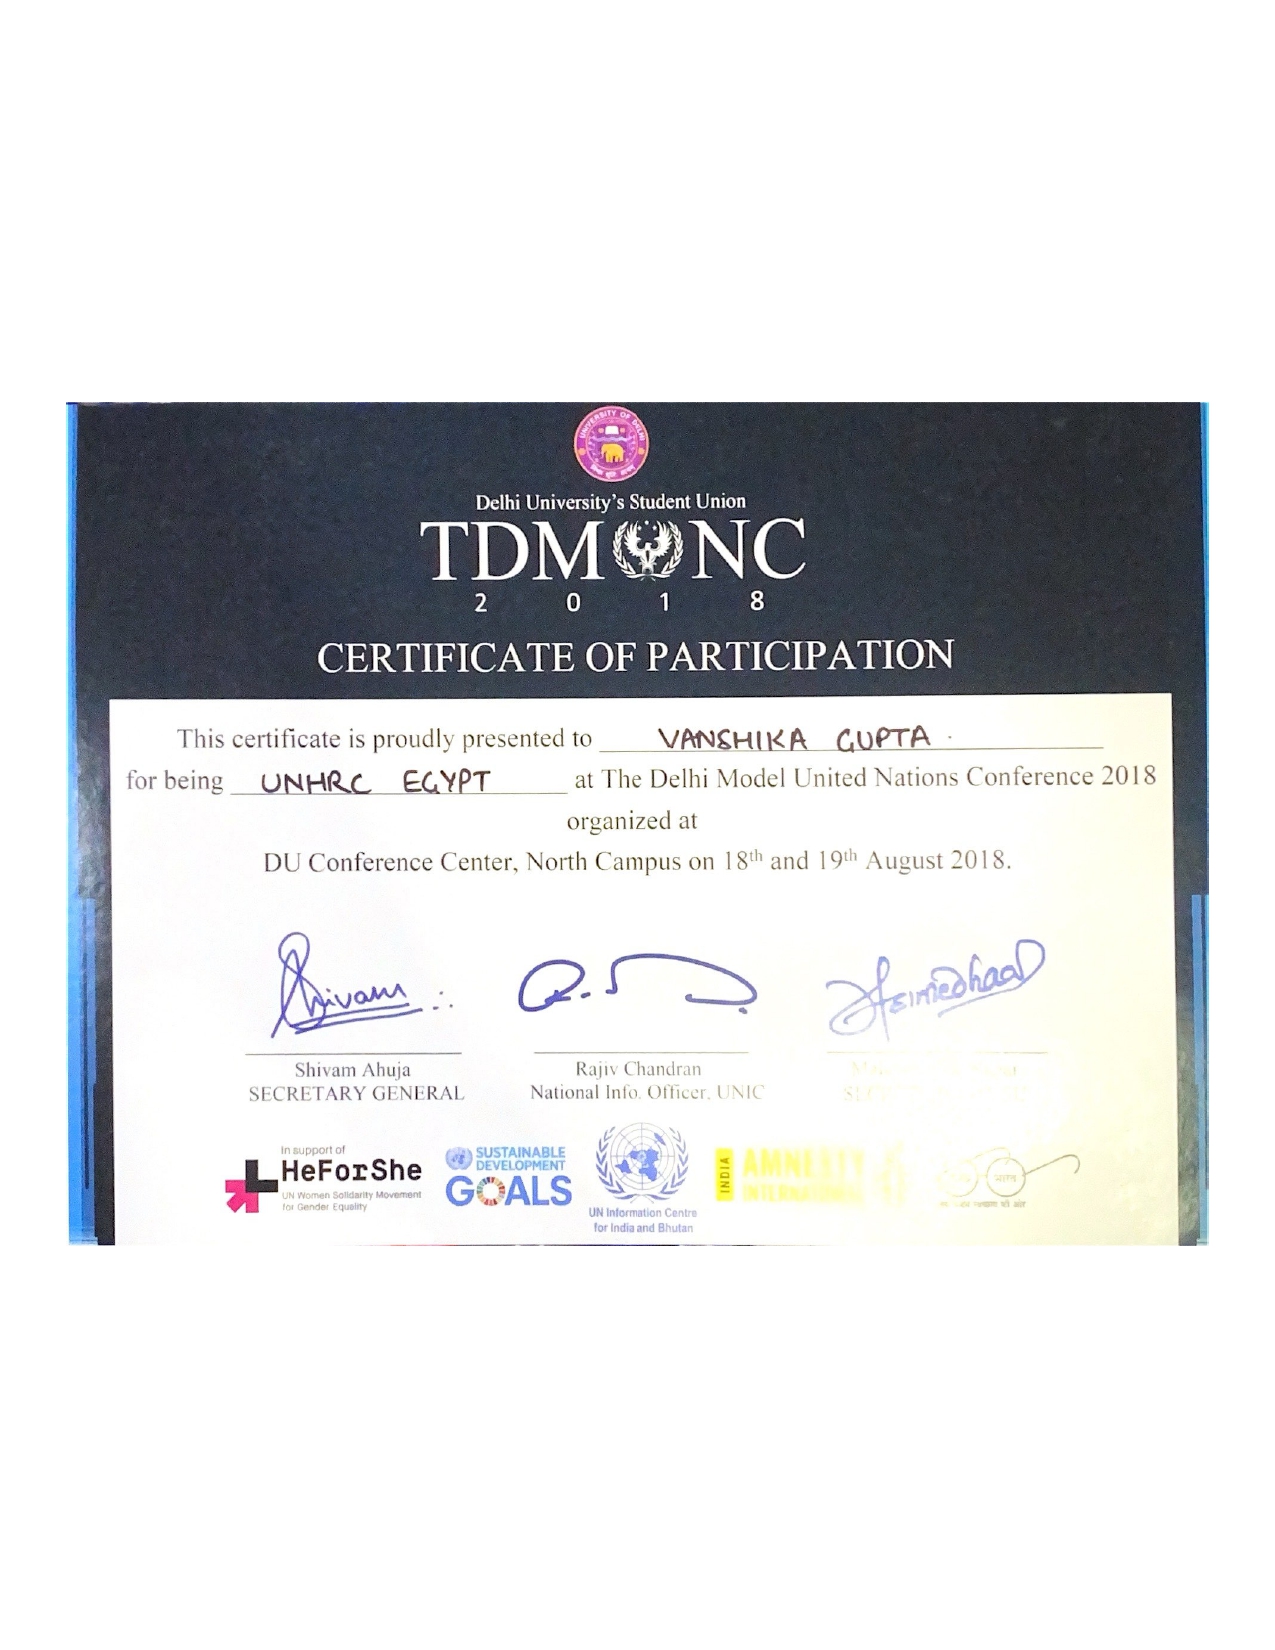 UNIVERSITY OF DELHI
Delhi University's Student Union
TDM NC
2 0 1 8
CERTIFICATE OF PARTICIPATION
This certificate is proudly presented to VANSHIKA GUPTA
for being UNHRC EGYPT at The Delhi Model United Nations Conference 2018
organized at
DU Conference Center, North Campus on 18th and 19th August 2018.
Shivam
Shivam Ahuja
SECRETARY GENERAL
Rajiv Chandran
National Info. Officer, UNIC
In support of
HeForShe
UN Women Solidarity Movement
for Gender Equality
SUSTAINABLE
DEVELOPMENT
GOALS
UN Information Centre
for India and Bhutan
INDIA
AMNESTY
INTERNATIONAL
भारत